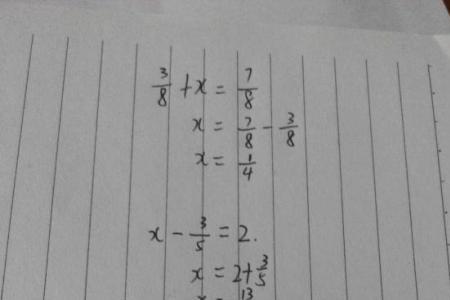 3/8 + x = 7/8
x = 7/8 - 3/8
x = 1/4
x - 3/5 = 2.
x = 2 + 3/5
x = 13